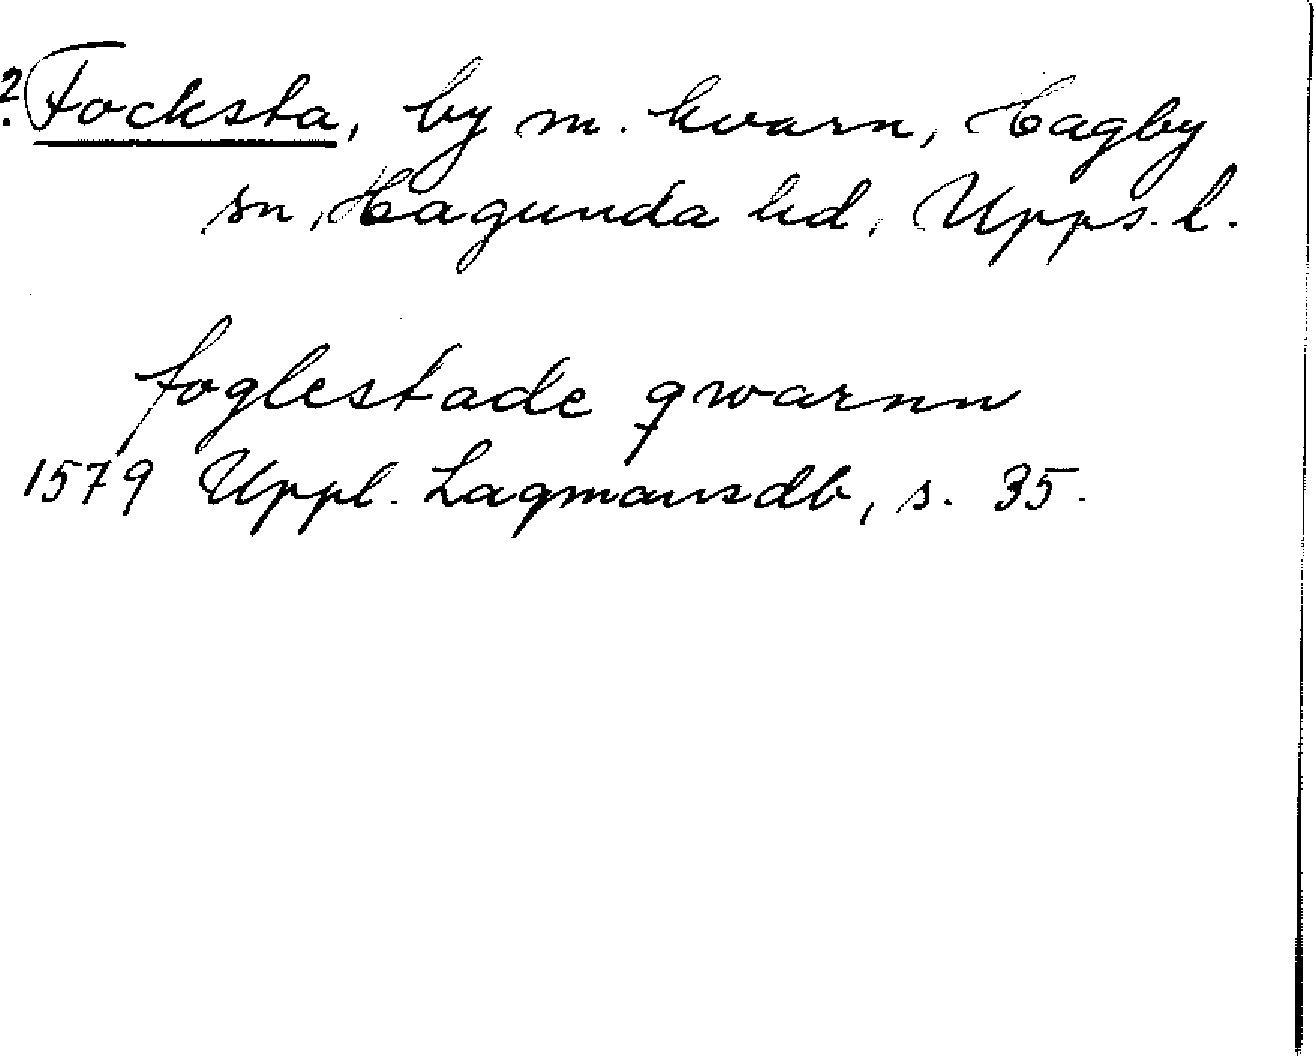 ? Focksta, by m. kvarn, Hagby
sn, Hagunda hd, Upps. l.
foglestade qwarnn
1579 Uppl. Lagmansdb, s. 35.